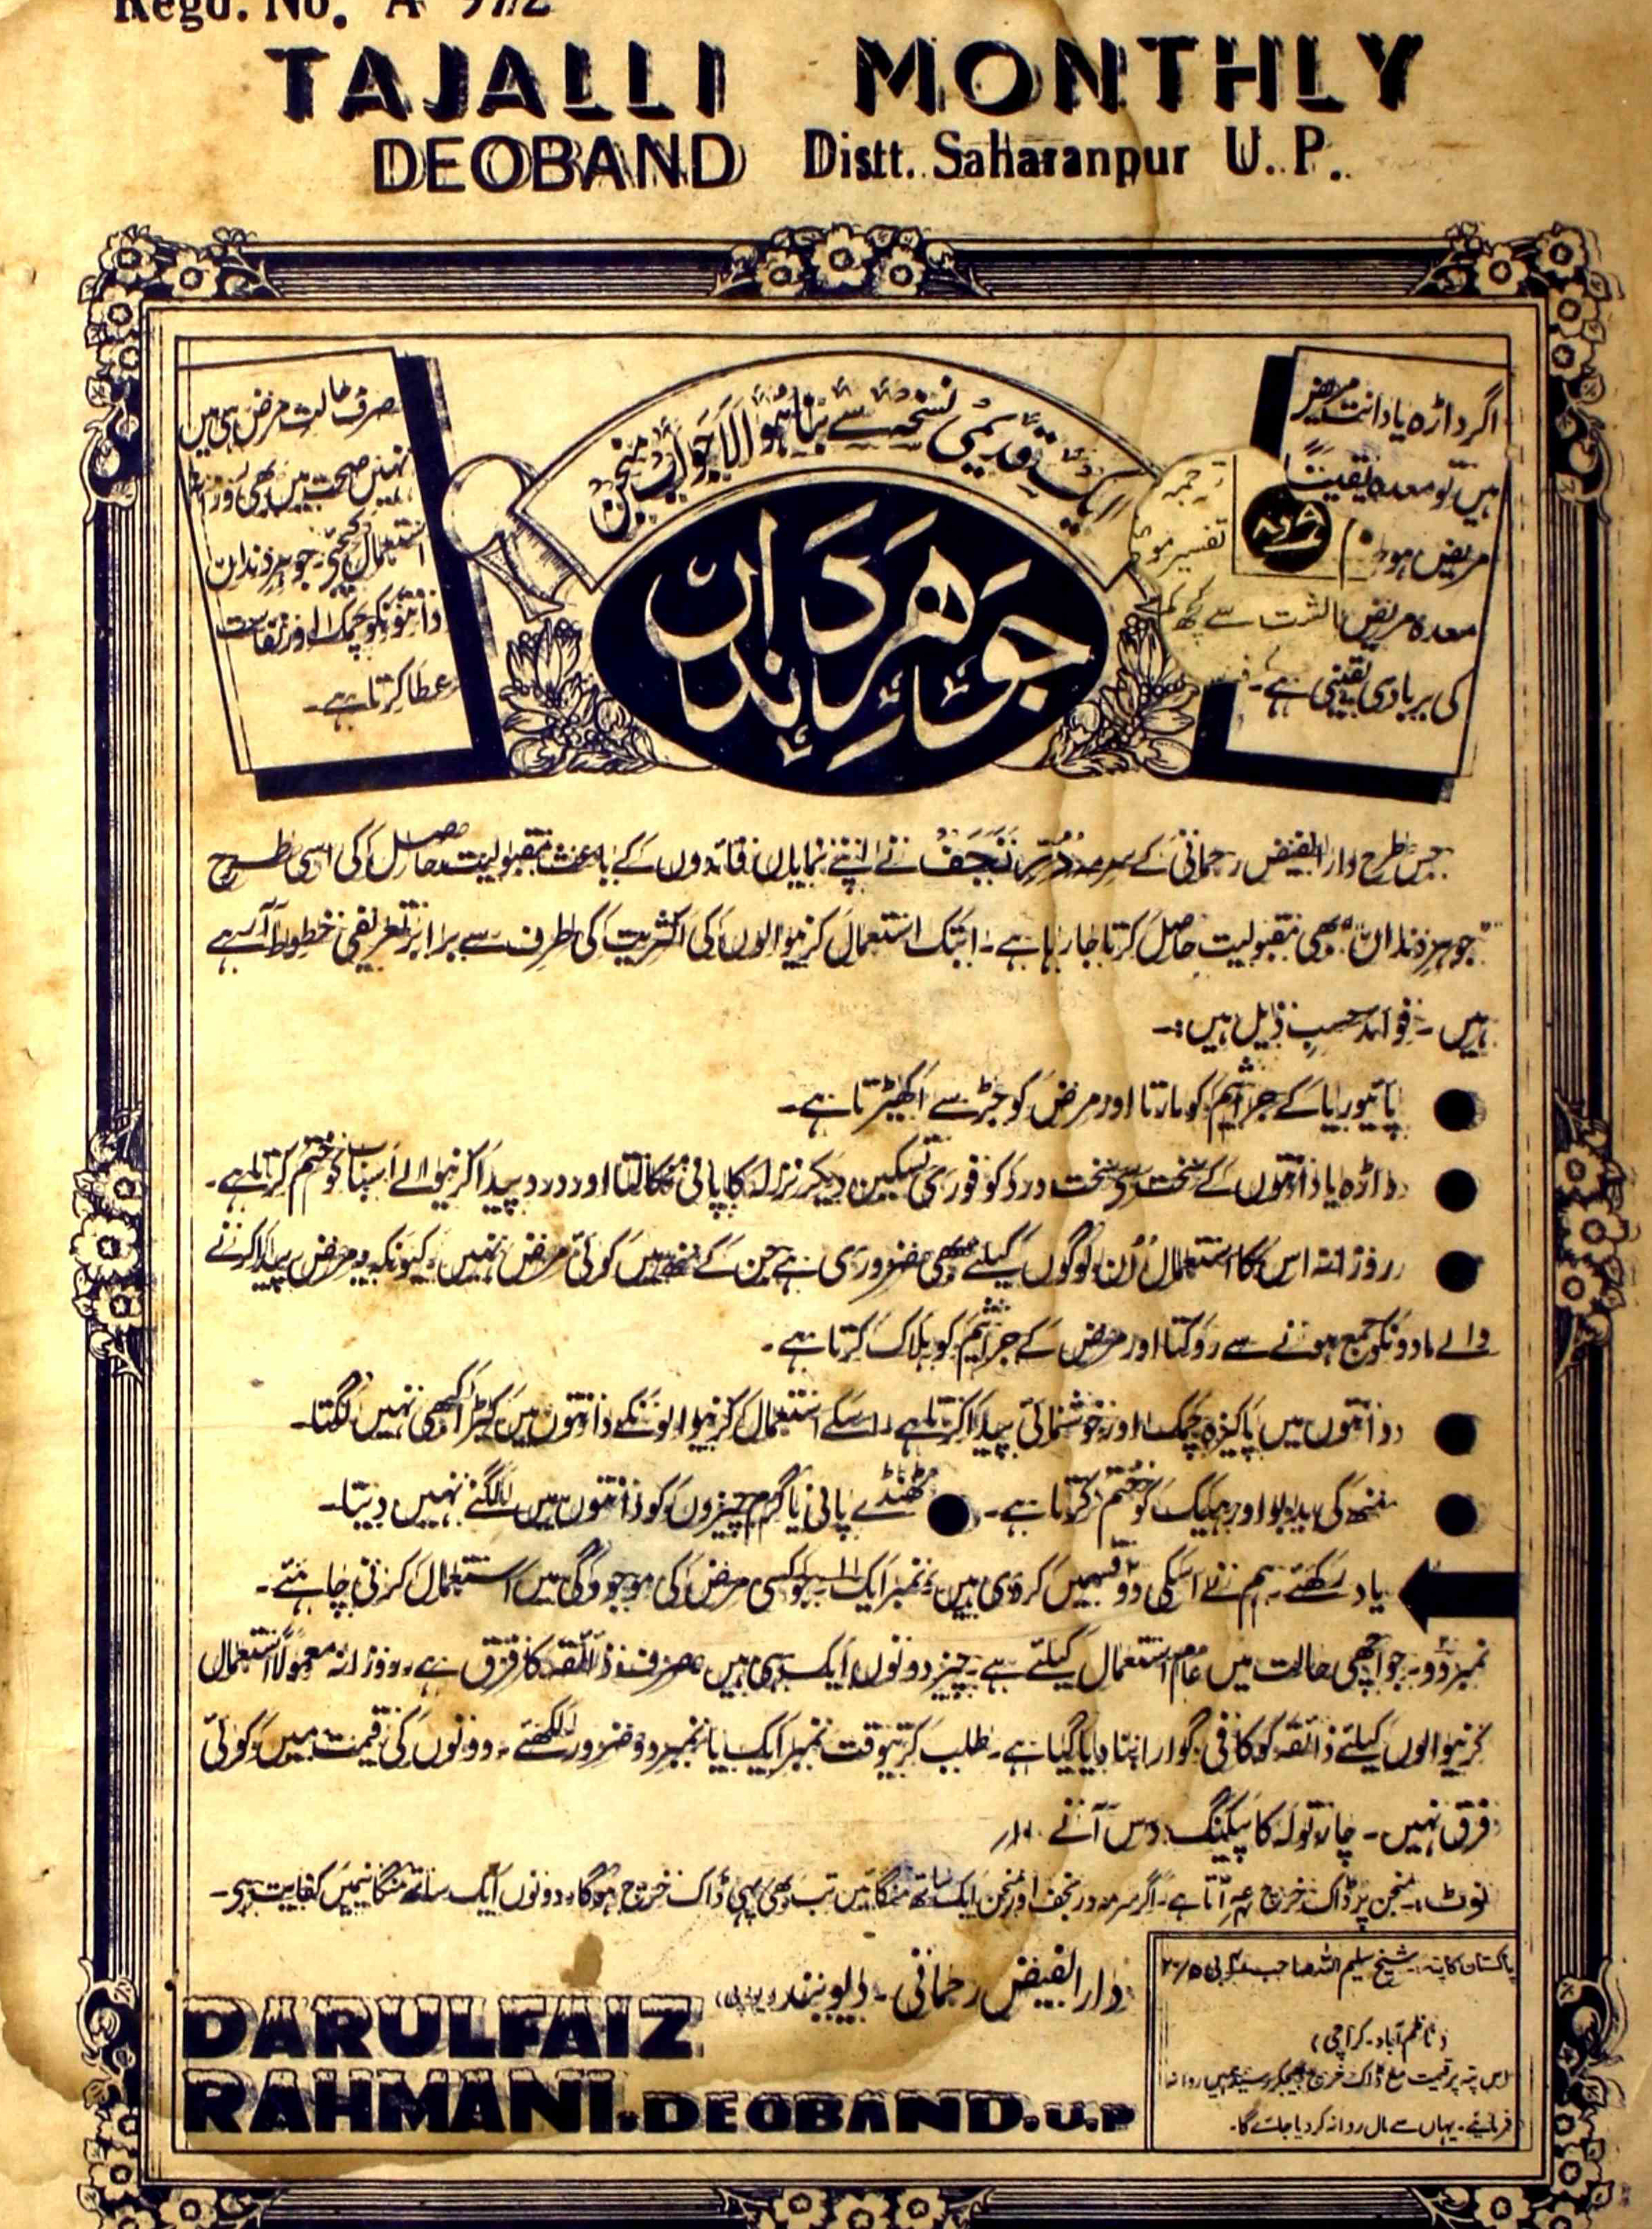 Regd. No. A
TAJALLI MONTHLY
DEOBAND Distt. Saharanpur U. P.
اگر داڑھ یا دانت مریض
ہیں تو معدہ یقیناً
مریض ہو
معدہ مریض
کی بربادی یقینی ہے۔
ترجمہ
تفسیر
سے کچھ کم
ایک قدیمی نسخہ سے بنا ہوا لاجواب منجن
جوہر دنداں
صرف حالت مرض ہی میں
نہیں صحت میں بھی روزانہ
استعمال کیجئے۔ جوہر دندان
دانتونکو چمک اور نفاست
عطا کرتا ہے۔
جس طرح دارالفیض رحمانی کے سرمہ دُرِّ نَجَف نے اپنے نمایاں فائدوں کے باعث مقبولیت حاصل کی اسی طرح
"جوہر دندان" بھی مقبولیت حاصل کرتا جا رہا ہے۔ ابتک استعمال کرنیوالوں کی اکثریت کی طرف سے برابر تعریفی خطوط آ رہے
ہیں۔ فوائد حسبِ ذیل ہیں:۔
● پائیوریا کے جراثیم کو مارتا اور مرض کو جڑ سے اکھیڑتا ہے۔
● داڑھ یا دانتوں کے سخت سے سخت درد کو فوری تسکین دیکر نزلہ کا پانی نکالتا اور درد پیدا کرنیوالے اسباب کو ختم کرتا ہے۔
● روزانہ اس کا استعمال اُن لوگوں کیلئے بھی ضروری ہے جن کے منھ میں کوئی مرض نہیں۔ کیونکہ یہ مرض پیدا کرنے
والے مادونکو جمع ہونے سے روکتا اور مرض کے جراثیم کو ہلاک کرتا ہے۔
● دانتوں میں پاکیزہ چمک اور خوشنمائی پیدا کرتا ہے۔ اسکے استعمال کرنیوالونکے دانتوں میں کیڑا کبھی نہیں لگتا۔
● منھ کی بدبو اور بہیک کو ختم کرتا ہے۔ ● ٹھنڈے پانی یا گرم چیزوں کو دانتوں میں لگنے نہیں دیتا۔
یاد رکھئے۔ ہم نے اسکی دو قسمیں کر دی ہیں۔ نمبر ایک۔ جو کسی مرض کی موجودگی میں استعمال کرنی چاہئے۔
نمبر دو۔ جو اچھی حالت میں عام استعمال کیلئے ہے۔ چیز دونوں ایک ہی ہیں صرف ذائقہ کا فرق ہے۔ روزانہ معمولاً استعمال
کرنیوالوں کیلئے ذائقہ کو کافی گوارا بنا دیا گیا ہے۔ طلب کرتیوقت نمبر ایک یا نمبر دو ضرور لکھئے۔ دونوں کی قیمت میں کوئی
فرق نہیں۔ چار تولہ کا پیکنگ دس آنے ۱۰؍
نوٹ:۔ منجن پر ڈاک خرچ آتا ہے۔ اگر سرمہ در نجف اور منجن ایک ساتھ منگائیں تب بھی یہی ڈاک خرچ ہوگا۔ دونوں ایک ساتھ منگانیمیں کفایت ہے۔
دارالفیض رحمانی۔ دیوبند (یو پی)
DARULFAIZ
RAHMANI. DEOBAND. U.P
پاکستان کا پتہ:۔ شیخ سلیم اللہ صاحب
(ناظم آباد۔ کراچی)
اس پتہ پر قیمت مع ڈاک خرچ بھیجکر رسید ہمیں روانہ
فرمائیے۔ یہاں سے مال روانہ کر دیا جائے گا۔